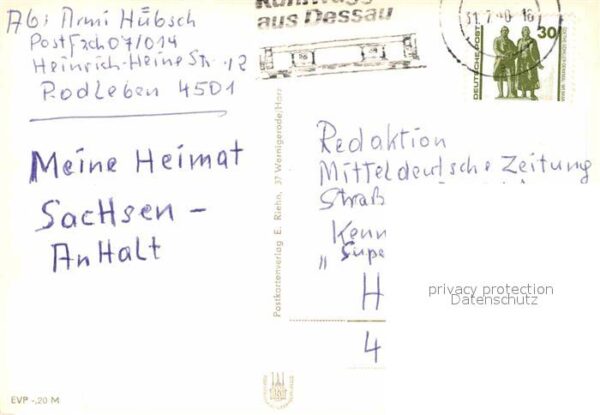 Ab: Armi Hübsch
Postfach 07/014
Heinrich-Heine Str. 12
Rodleben 4501
Meine Heimat
Sachsen -
Anhalt
aus Dessau
31.7.90-16
DEUTSCHE POST
30
Redaktion
Mitteldeutsche Zeitung
Straß
Kenn
„Supe
H
4
privacy protection
Datenschutz
Postkartenverlag E. Riehn, 37 Wernigerode, Harz
EVP -,20 M